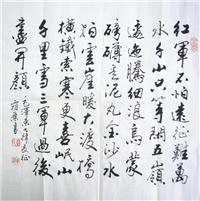 紅軍不怕遠征難萬
水千山只等閑五嶺
逶迤騰細浪烏蒙
磅礴走泥丸金沙水
拍雲崖暖大渡橋
橫鐵索寒更喜岷山
千里雪三軍過後
盡開顏
毛澤東七律長征
書